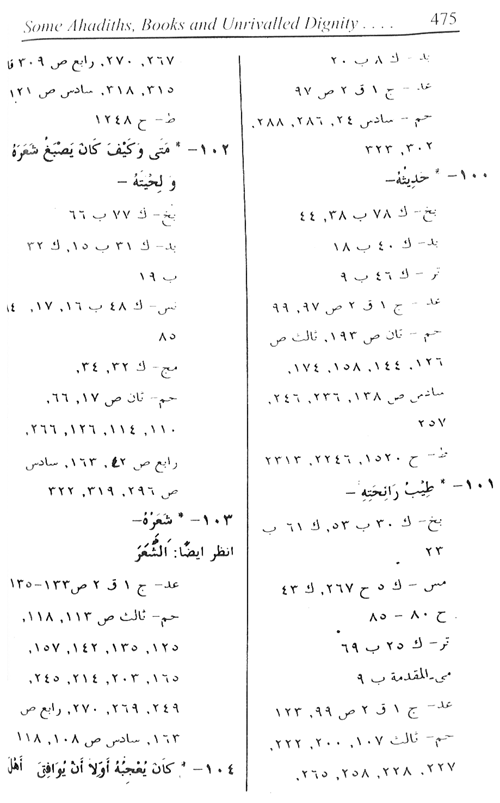 Some Ahadiths, Books and Unrivalled Dignity . . . . 475
بد- ك ٨ ب ٢٠
عد- ج ١ ق ٢ ص ٩٧
حم- سادس ٢٤, ٢٨٦, ٢٨٨,
٣٠٢, ٣٢٣
١٠٠- * حَدِيثُهُ-
بخ- ك ٧٨ ب ٣٨, ٤٤
بد- ك ٤٠ ب ١٨
تر - ك ٤٦ ب ٩
عد- ج ١ ق ٢ ص ٩٧, ٩٩
حم- ثان ص ١٩٣, ثالث ص
١٢٦, ١٤٤, ١٥٨, ١٧٤,
سادس ص ١٣٨, ٢٣٦, ٢٤٦,
٢٥٧
ط- ح ١٥٢٠, ٢٢٤٦, ٢٣١٣
١٠١- * طِيْبُ رَائِحَتِهِ -
بخ- ك ٣٠ ب ٥٣, ك ٦١ ب
٢٣
مس- ك ٥ ح ٢٦٧, ك ٤٣
ح ٨٠ - ٨٥
تر- ك ٢٥ ب ٦٩
مى-المقدمة ب ٩
عد- ج ١ ق ٢ ص ٩٩, ١٢٣
حم- ثالث ١٠٧, ٢٠٠, ٢٢٢,
٢٢٧, ٢٢٨, ٢٥٨, ٢٦٥,
٢٦٧, ٢٧٠, رابع ص ٣٠٩ قا
٣١٥, ٣١٨, سادس ص ١٢١
ط- ح ١٢٤٨
١٠٢- * مَتَى وَكَيْفَ كَانَ يَصْبَغُ شَعَرَهُ
و لِحْيَتَهُ -
بخ- ك ٧٧ ب ٦٦
بد- ك ٣١ ب ١٥, ك ٣٢
ب ١٩
نس- ك ٤٨ ب ١٦, ١٧,
٨٥
مج- ك ٣٢, ٣٤,
حم- ثان ص ١٧, ٦٦,
١١٠, ١١٤, ١٢٦, ٢٦٦,
رابع ص ٤٢, ١٦٣, سادس
ص ٢٩٦, ٣١٩, ٣٢٢
١٠٣- * شَعَرُهُ-
انظر ايضًا: اَلشَّعَرَ
عد- ج ١ ق ٢ ص ١٣٣-١٣٥
حم- ثالث ص ١١٣, ١١٨,
١٢٥, ١٣٥, ١٤٢, ١٥٧,
١٦٥, ٢٠٣, ٢١٤, ٢٤٥,
٢٤٩, ٢٦٩, ٢٧٠, رابع ص
١٦٣, سادس ص ١٠٨, ١١٨
١٠٤- * كَانَ يُعْجِبُهُ أَوَّلاً أَنْ يُوَافِقَ أَهْلَ